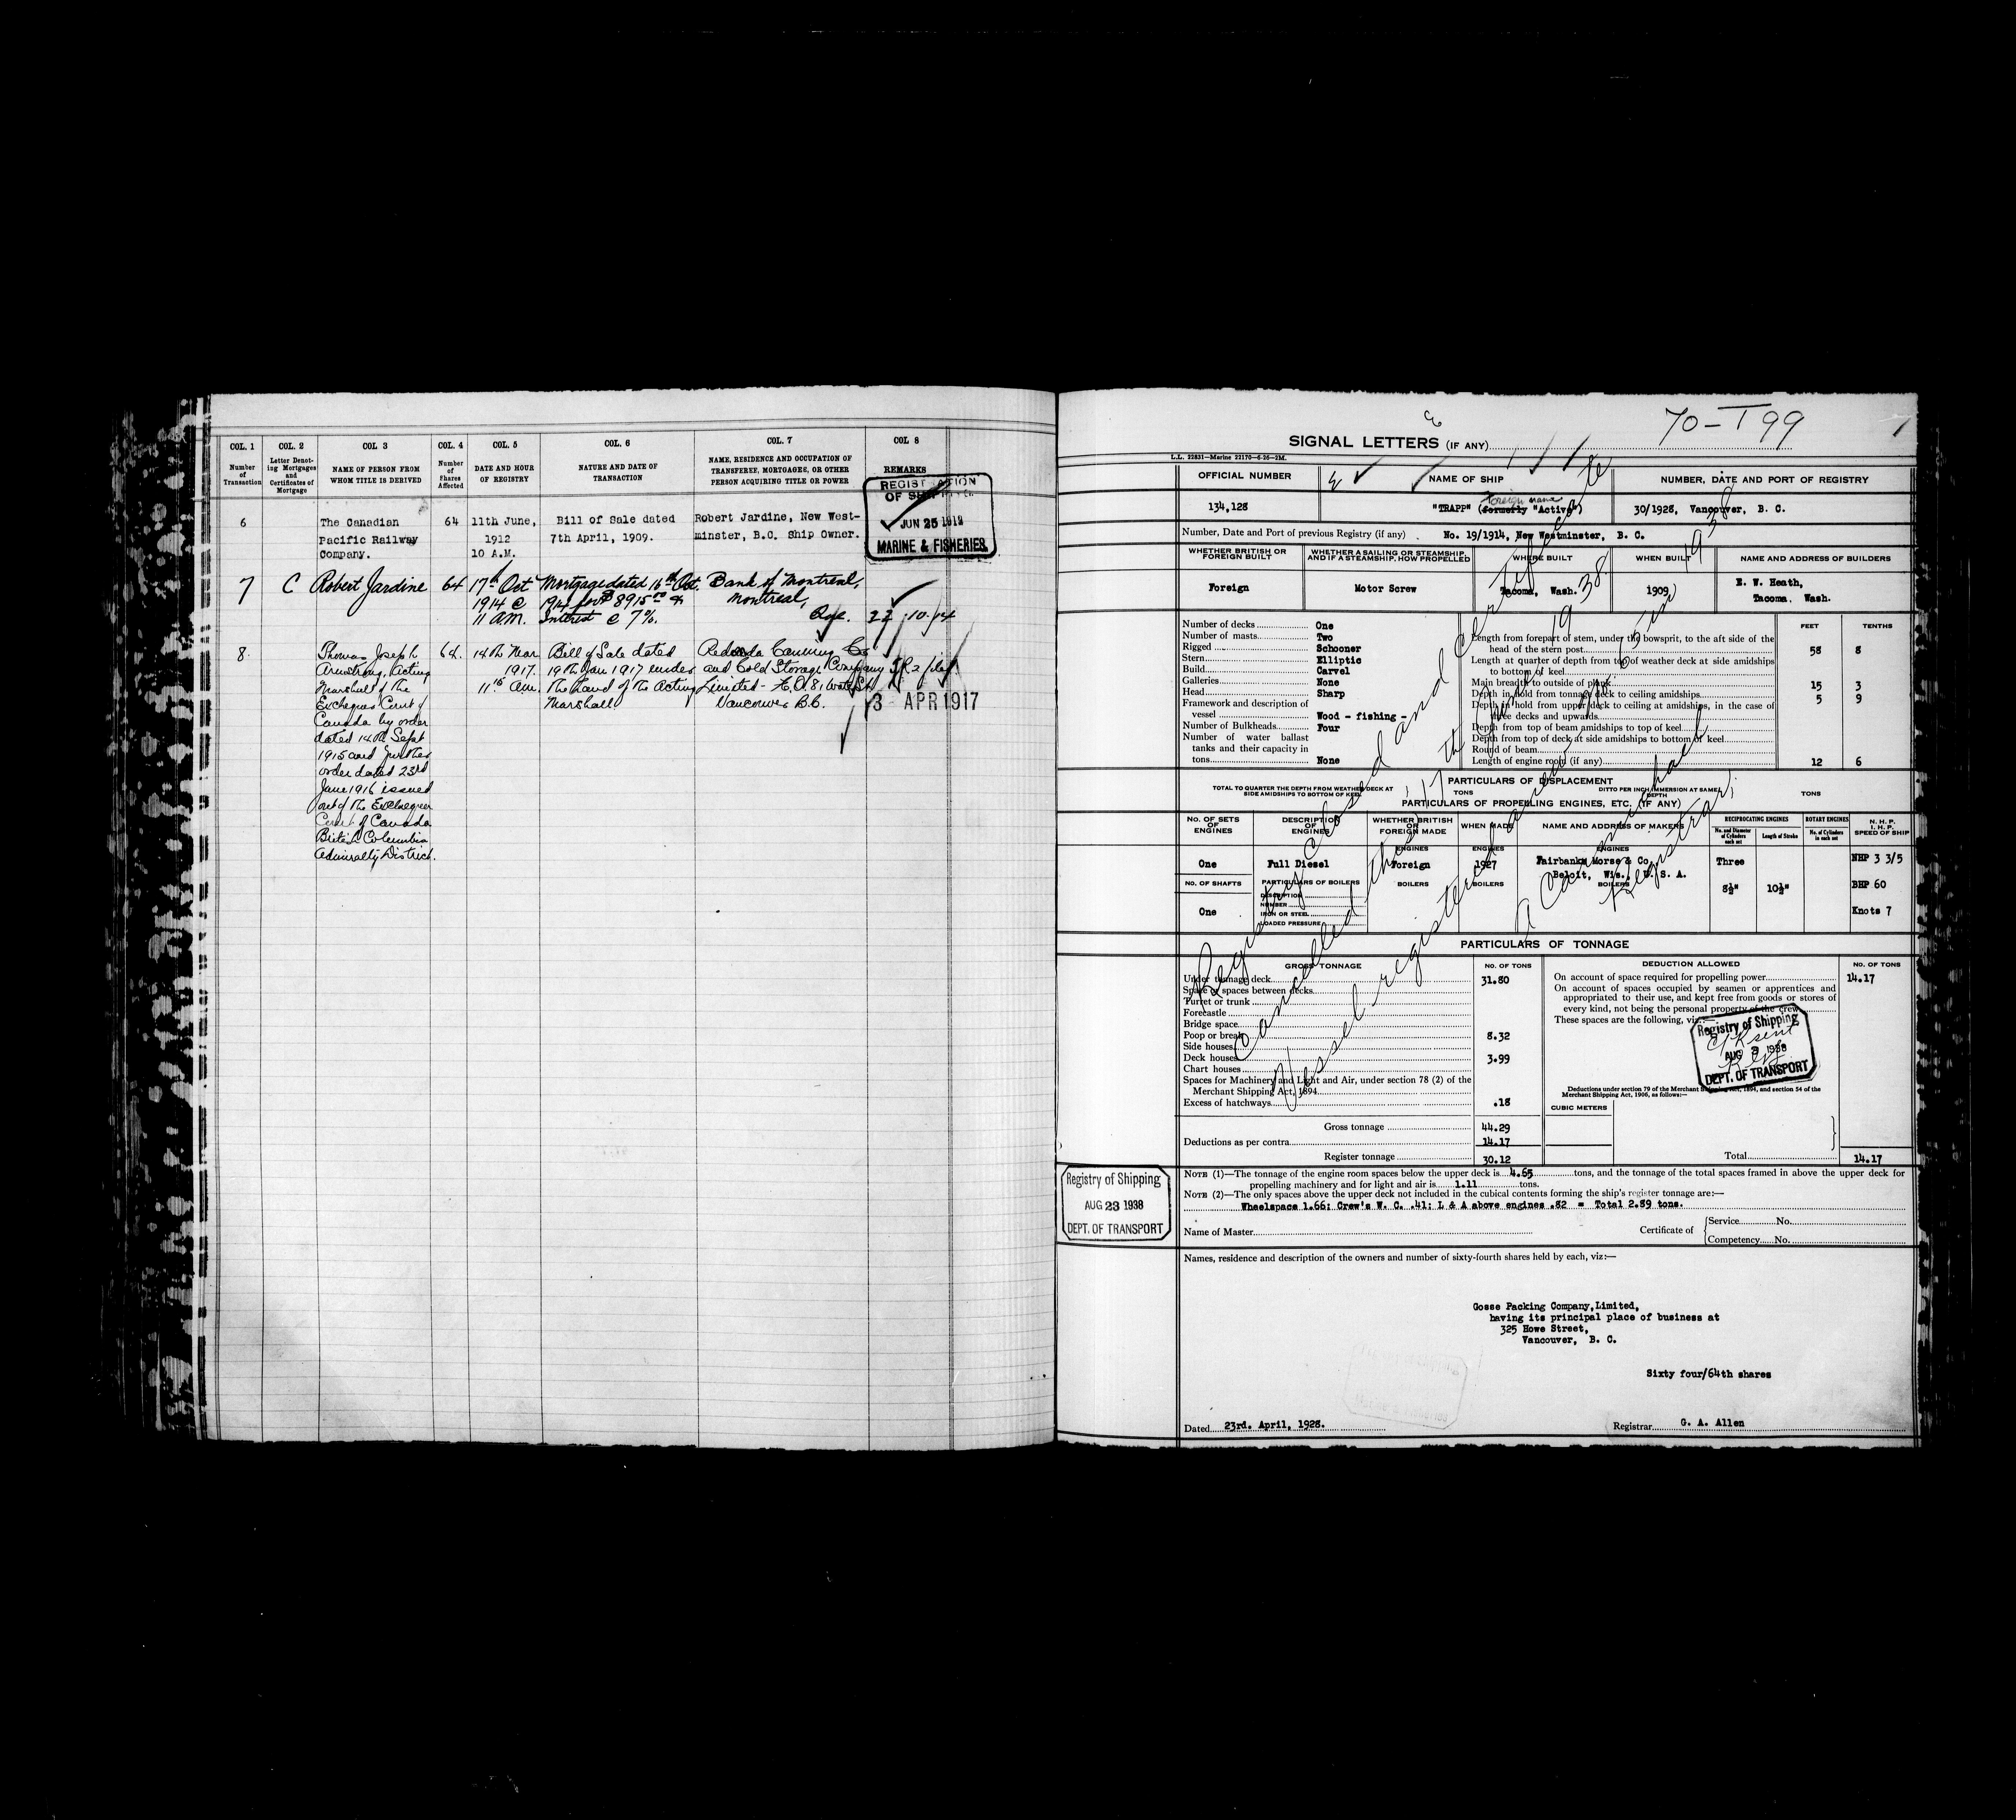 COL. 1
Number
of
Transaction
COL. 2
Letter Denot-
ing Mortgages
and
Certificates of
Mortgage
COL 3
NAME OF PERSON FROM
WHOM TITLE IS DERIVED
COL. 4
Number
of
Shares
Affected
COL. 5
DATE AND HOUR
OF REGISTRY
COL. 6
NATURE AND DATE OF
TRANSACTION
COL. 7
NAME, RESIDENCE AND OCCUPATION OF
TRANSFEREE, MORTGAGES, OR OTHER
PERSON ACQUIRING TITLE OR POWER
COL 8
REMARKS
REGISTRATION
OF SHIPPING
JUN 25 1912
MARINE & FISHERIES
6
The Canadian
Pacific Railway
Company.
64
11th June,
1912
10 A.M.
Bill of Sale dated
7th April, 1909.
Robert Jardine, New West-
minster, B.C. Ship Owner.
7
C
Robert Jardine
64
17th Oct
1914 @
11 AM.
Mortgage dated 16th Oct.
1914 for $8915.00 &
Interest @ 7%.
Bank of Montreal,
Montreal,
Que.
22.10.14
8.
Thomas Joseph
Armstrong, Acting
Marshall of the
Exchequer Court of
Canada by order
dated 14th Sept
1915 and further
order dated 23rd
June 1916 issued
out of the Exchequer
Court of Canada
British Columbia
Admiralty District.
64.
14th Mar
1917.
11.15 am.
Bill of Sale dated
19th Jan 1917 under
the hand of the Acting
Marshall
Redonda Canning Co
and Cold Storage Company
Limited - 81 Water St
Vancouver B.C.
3 APR 1917
70-T99
SIGNAL LETTERS (IF ANY)
L.L. 22831—Marine 22170—6-26—2M.
OFFICIAL NUMBER
NAME OF SHIP
NUMBER, DATE AND PORT OF REGISTRY
134,128
foreign name
"TRAPP" (formerly "Active")
30/1928, Vancouver, B. C.
Number, Date and Port of previous Registry (if any)
No. 19/1914, New Westminster, B. C.
WHETHER BRITISH OR
FOREIGN BUILT
WHETHER A SAILING OR STEAMSHIP,
AND IF A STEAMSHIP, HOW PROPELLED
WHERE BUILT
WHEN BUILT
NAME AND ADDRESS OF BUILDERS
Foreign
Motor Screw
Tacoma, Wash.
1909
E. W. Heath,
Tacoma. Wash.
Number of decks One
Number of masts Two
Rigged Schooner
Stern Elliptic
Build Carvel
Galleries None
Head Sharp
Framework and description of
vessel Wood - fishing -
Number of Bulkheads Four
Number of water ballast
tanks and their capacity in
tons None
FEET TENTHS
Length from forepart of stem, under the bowsprit, to the aft side of the
head of the stern post 58 8
Length at quarter of depth from top of weather deck at side amidships
to bottom of keel
Main breadth to outside of plank 15 3
Depth in hold from tonnage deck to ceiling amidships 5 9
Depth in hold from upper deck to ceiling at amidships, in the case of
three decks and upwards
Depth from top of beam amidships to top of keel
Depth from top of deck at side amidships to bottom of keel
Round of beam
Length of engine room (if any) 12 6
PARTICULARS OF DISPLACEMENT
TOTAL TO QUARTER THE DEPTH FROM WEATHER DECK AT
SIDE AMIDSHIPS TO BOTTOM OF KEEL
TONS
DITTO PER INCH IMMERSION AT SAME
DEPTH
TONS
PARTICULARS OF PROPELLING ENGINES, ETC. (IF ANY)
NO. OF SETS
OF
ENGINES
DESCRIPTION
OF
ENGINES
WHETHER BRITISH
OR
FOREIGN MADE
WHEN MADE
NAME AND ADDRESS OF MAKERS
RECIPROCATING ENGINES
No. and Diameter
of Cylinders
each set
Length of Stroke
ROTARY ENGINES
No. of Cylinders
in each set
N. H. P.
I. H. P.
SPEED OF SHIP
ENGINES
ENGINES
ENGINES
One
Full Diesel
Foreign
1927
Fairbanks Morse & Co
Beloit, Wis., U. S. A.
Three
8½"
10½"
NHP 3 3/5
BHP 60
Knots 7
NO. OF SHAFTS
One
PARTICULARS OF BOILERS
DESCRIPTION
NUMBER
IRON OR STEEL
LOADED PRESSURE
BOILERS
BOILERS
BOILERS
PARTICULARS OF TONNAGE
GROSS TONNAGE
NO. OF TONS
Under tonnage deck 31.80
Space or spaces between decks
Turret or trunk
Forecastle
Bridge space
Poop or break 8.32
Side houses
Deck houses 3.99
Chart houses
Spaces for Machinery and Light and Air, under section 78 (2) of the
Merchant Shipping Act, 1894
Excess of hatchways .18
Gross tonnage 44.29
Deductions as per contra 14.17
Register tonnage 30.12
DEDUCTION ALLOWED
NO. OF TONS
On account of space required for propelling power 14.17
On account of spaces occupied by seamen or apprentices and
appropriated to their use, and kept free from goods or stores of
every kind, not being the personal property of the crew
These spaces are the following, viz:—
Registry of Shipping
AUG 3 1938
DEPT. OF TRANSPORT
Deductions under section 79 of the Merchant Shipping Act, 1894, and section 54 of the
Merchant Shipping Act, 1906, as follows:—
CUBIC METERS
Total 14.17
Registry of Shipping
AUG 23 1938
DEPT. OF TRANSPORT
NOTE (1)—The tonnage of the engine room spaces below the upper deck is 4.65 tons, and the tonnage of the total spaces framed in above the upper deck for
propelling machinery and for light and air is 1.11 tons.
NOTE (2)—The only spaces above the upper deck not included in the cubical contents forming the ship's register tonnage are:—
Wheelspace 1.66; Crew's W. C. .41; L & A above engines .82 = Total 2.89 tons.
Name of Master
Certificate of
Service No.
Competency No.
Names, residence and description of the owners and number of sixty-fourth shares held by each, viz:—
Gosse Packing Company,Limited,
having its principal place of business at
325 Howe Street,
Vancouver, B. C.
Sixty four/64th shares
Dated 23rd. April, 1928.
Registrar G. A. Allen
Registry closed and Certificate
Cancelled this 17th June 1938
Vessel registered anew
A Carmichael
Registrar